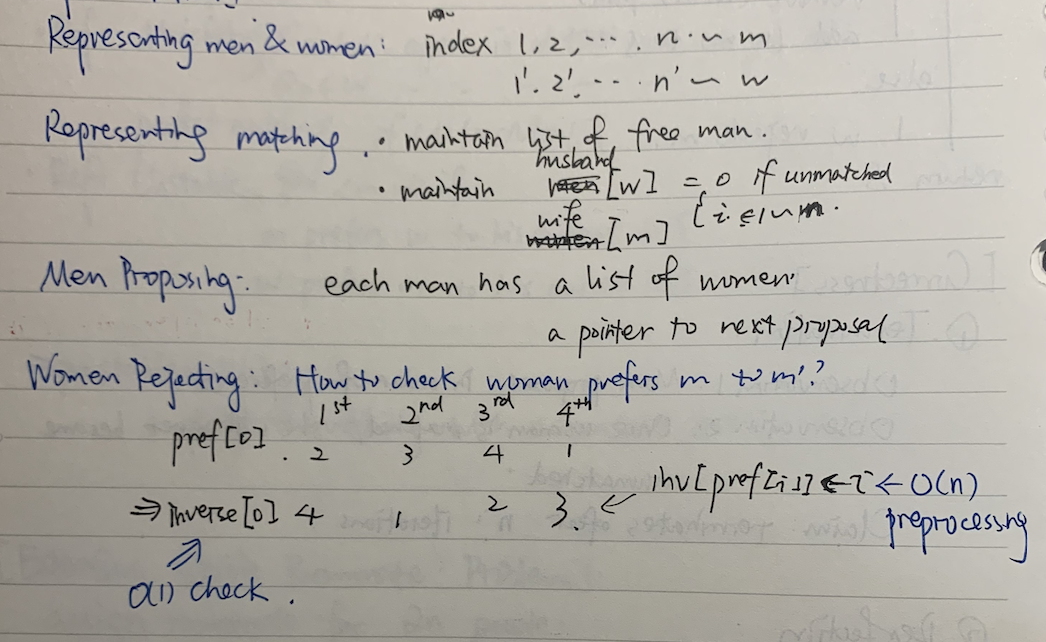 Representing men & women: index 1, 2, .... n. ~ m
1'. 2'. .... n' ~ w
Representing matching. • maintain list of free man.
husband
• maintain [w] = 0 if unmatched
wife { i ∈ 1~n.
[m]
Men Proposing: each man has a list of women.
a pointer to next proposal
Women Rejecting: How to check woman prefers m to m'?
1st 2nd 3rd 4th
pref[0]. 2 3 4 1
inv[pref[i]] ← i ← O(n)
⇒ inverse[0] 4 1 2 3 ← preprocessing
O(1) check.